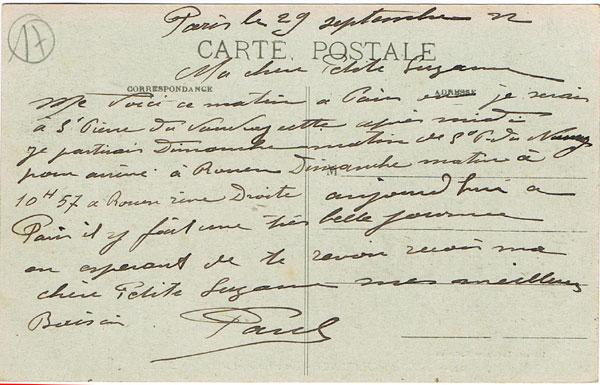 17
Paris le 29 septembre 22
CARTE POSTALE
Ma chere Petite Suzanne
CORRESPONDANCE ADRESSE
Me voici ce matin a Paris je serai
à St Pierre du Vauvray cette après midi
je partirais Dimanche matin de St P. du Vauvray
pour arrivé à Rouen Dimanche matin à
10H57 à Rouen rive Droite aujourd'hui a
Paris il y fait une très belle journee
en esperant de te revoir recois ma
chère Petite Suzanne mes meilleurs
Baisers Paul